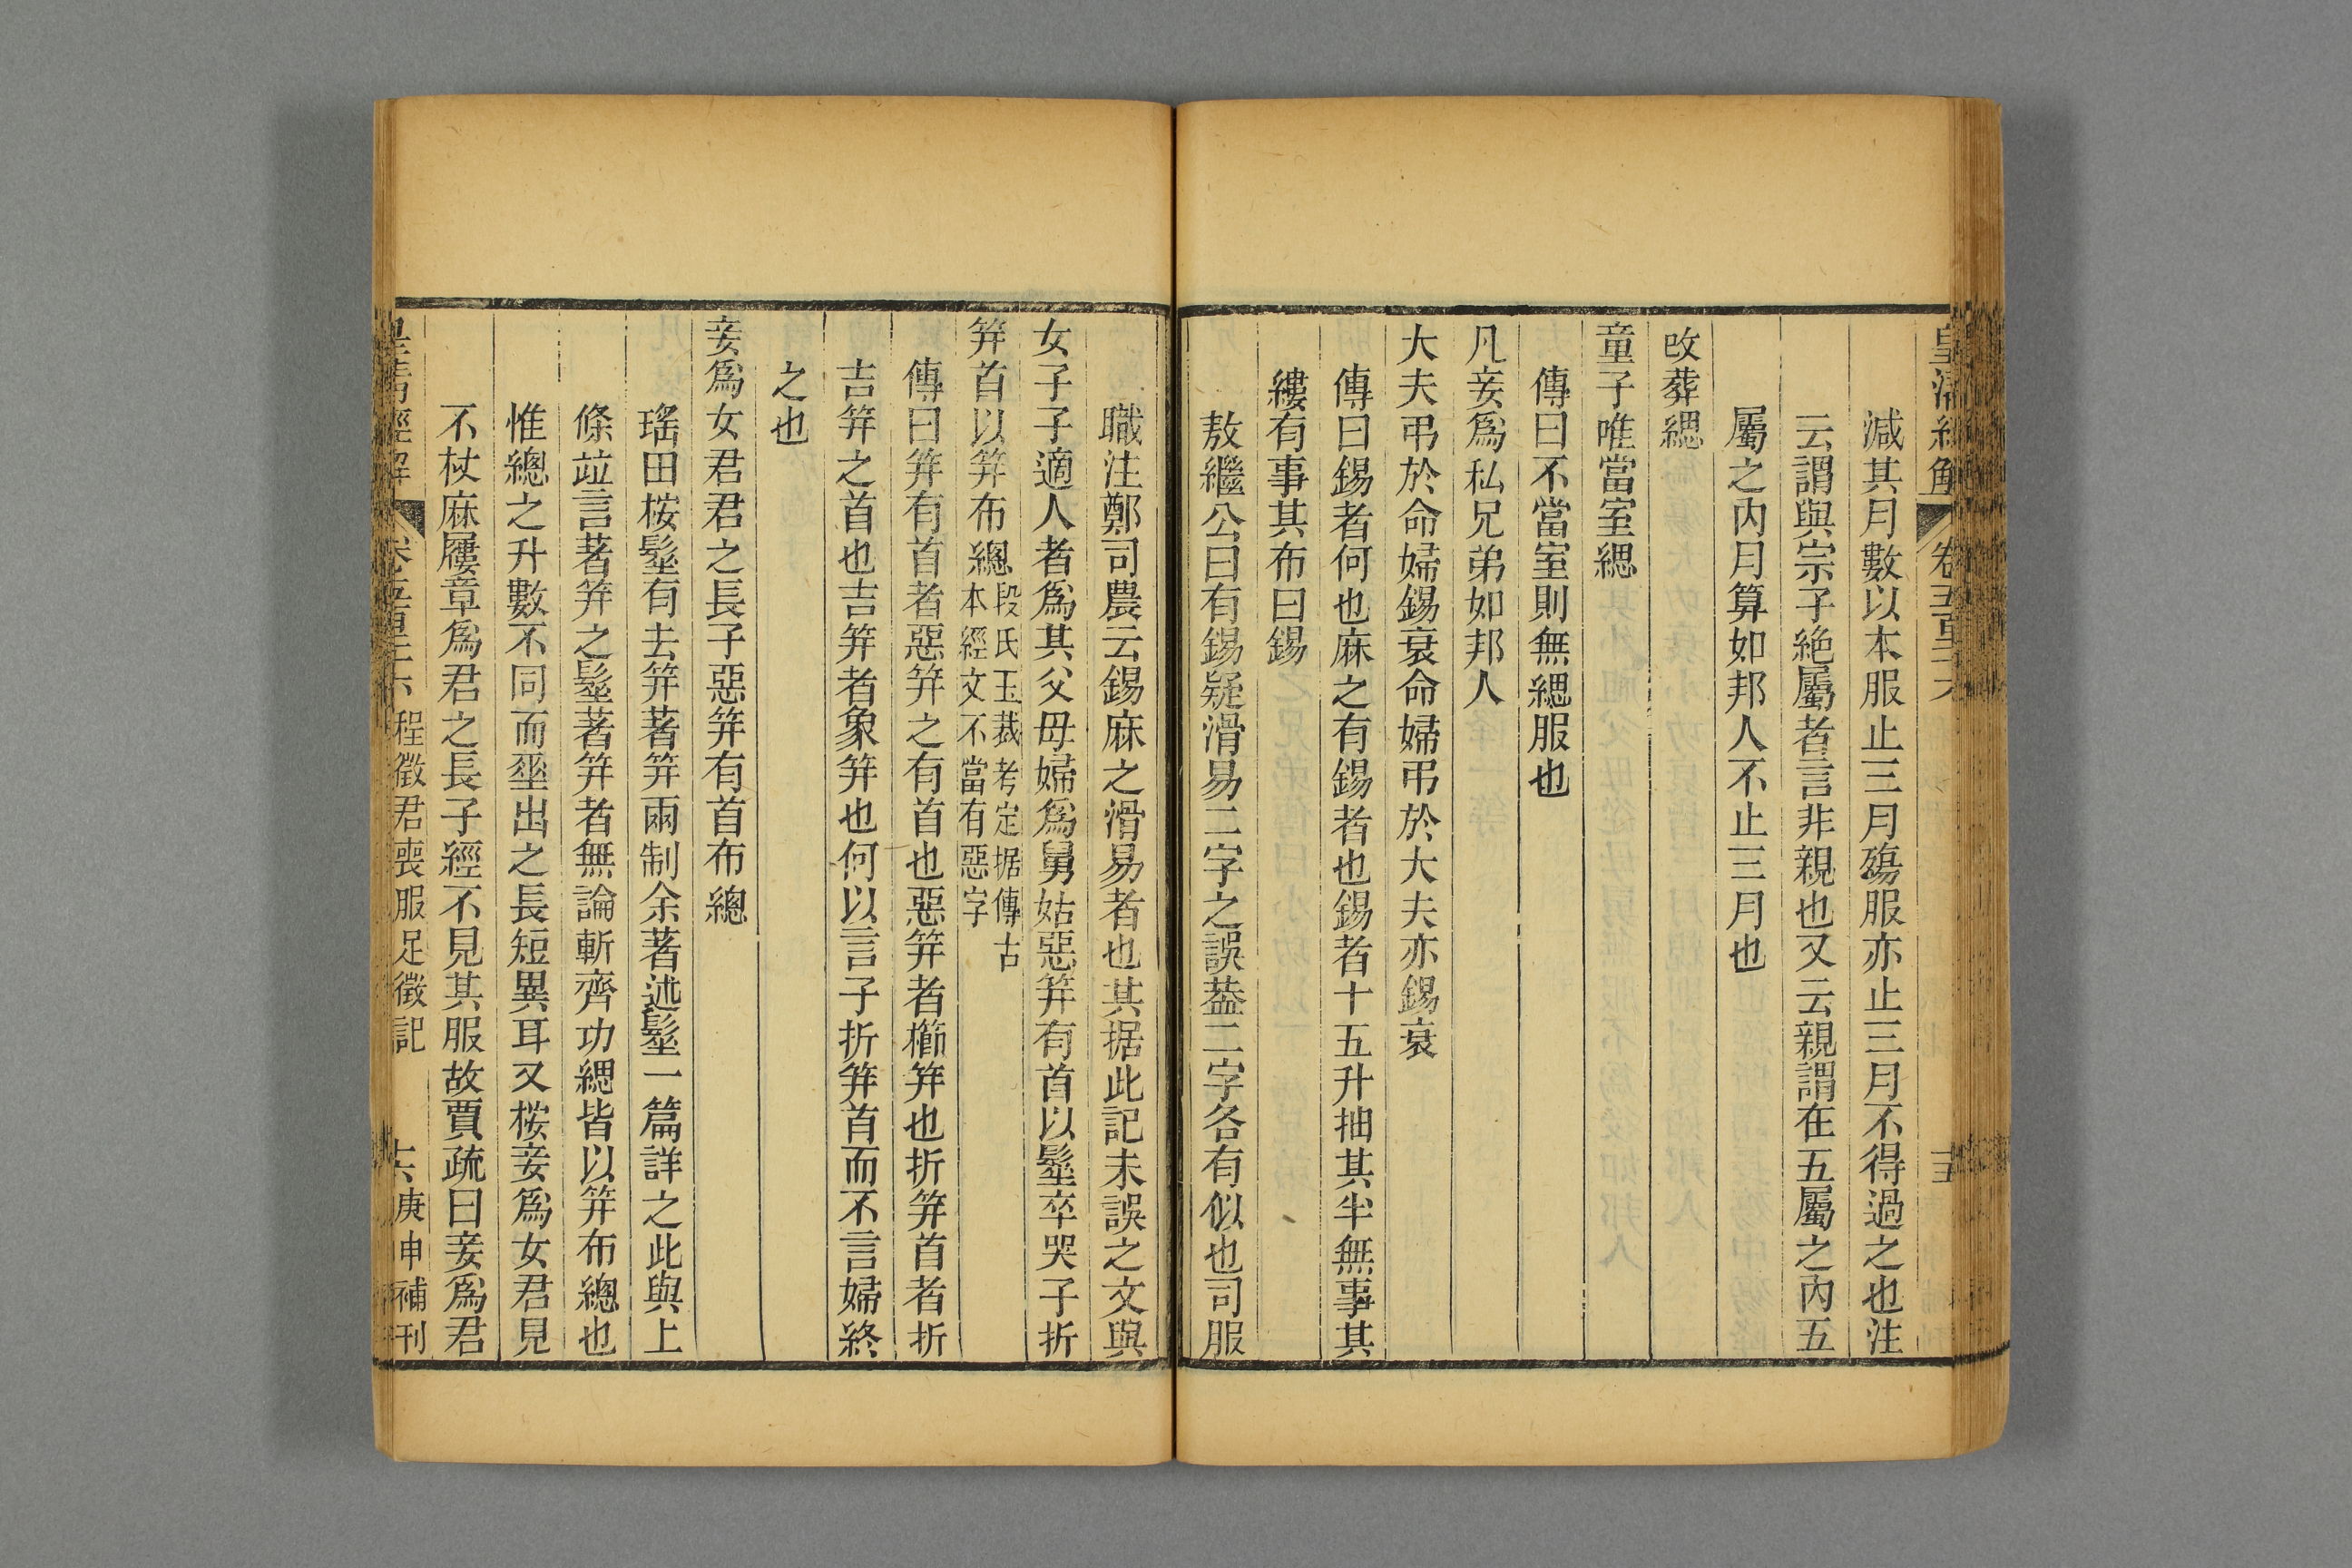 皇清經解 卷五百二十六 十五
減其月數以本服止三月殤服亦止三月不得過之也注
云謂與宗子絶屬者言非親也又云親謂在五屬之內五
屬之內月算如邦人不止三月也
改葬緦
童子唯當室緦
傳曰不當室則無緦服也
凡妾爲私兄弟如邦人
大夫弔於命婦錫衰命婦弔於大夫亦錫衰
傳曰錫者何也麻之有錫者也錫者十五升抽其半無事其
縷有事其布曰錫
敖繼公曰有錫疑滑易二字之誤葢二字各有似也司服
職注鄭司農云錫麻之滑易者也其据此記未誤之文與
女子子適人者爲其父母婦爲舅姑惡笄有首以髽卒哭子折
笄首以笄布總段氏玉裁考定据傳古本經文不當有惡字
傳曰笄有首者惡笄之有首也惡笄者櫛笄也折笄首者折
吉笄之首也吉笄者象笄也何以言子折笄首而不言婦終
之也
妾爲女君君之長子惡笄有首布總
瑤田桉髽有去笄著笄兩制余著述髽一篇詳之此與上
條竝言著笄之髽著笄者無論斬齊功緦皆以笄布總也
惟總之升數不同而𠂹出之長短異耳又桉妾爲女君見
不杖麻屨章爲君之長子經不見其服故賈疏曰妾爲君
皇清經解 卷五百二十六 程徵君喪服足徵記 十六 庚申補刊